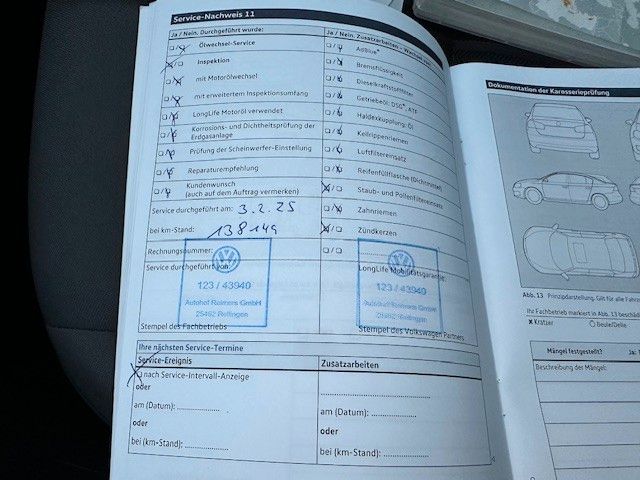 Service-Nachweis 11
Ja / Nein. Durchgeführt wurde:
Ölwechsel-Service
Inspektion
mit Motorölwechsel
mit erweitertem Inspektionsumfang
LongLife Motoröl verwendet
Korrosions- und Dichtheitsprüfung der
Erdgasanlage
Prüfung der Scheinwerfer-Einstellung
Reparaturempfehlung
Kundenwunsch
(auch auf dem Auftrag vermerken)
Service durchgeführt am: 3.2.25
bei km-Stand: 138149
Rechnungsnummer:
Service durchgeführt von:
123 / 43940
Autohof Reimers GmbH
25462 Rellingen
Stempel des Fachbetriebs
Ja / Nein. Zusatzarbeiten -
AdBlue®
Bremsflüssigkeit
Dieselkraftstofffilter
Getriebeöl: DSG®, ATF
Haldexkupplung: Öl
Keilrippenriemen
Luftfiltereinsatz
Reifenfüllflasche (Dichtmittel)
Staub- und Pollenfiltereinsatz
Zahnriemen
Zündkerzen
LongLife Mobilitätsgarantie:
123 / 43940
Autohof Reimers GmbH
25462 Rellingen
Stempel des Volkswagen Partners
Ihre nächsten Service-Termine
Service-Ereignis
nach Service-Intervall-Anzeige
oder
am (Datum):
oder
bei (km-Stand):
Zusatzarbeiten
am (Datum):
oder
bei (km-Stand):
Dokumentation der Karosserieprüfung
Abb. 13 Prinzipdarstellung. Gilt für alle
Ihr Fachbetrieb markiert in Abb. 13
x Kratzer
○ Beule/Delle
Mängel festgestellt? Ja:
Beschreibung der Mängel: